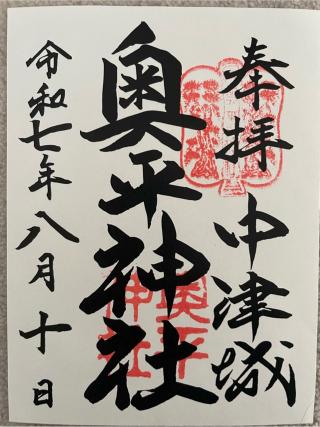 奉拝
中津城
奥平神社
奥平
神社
令和七年八月十日